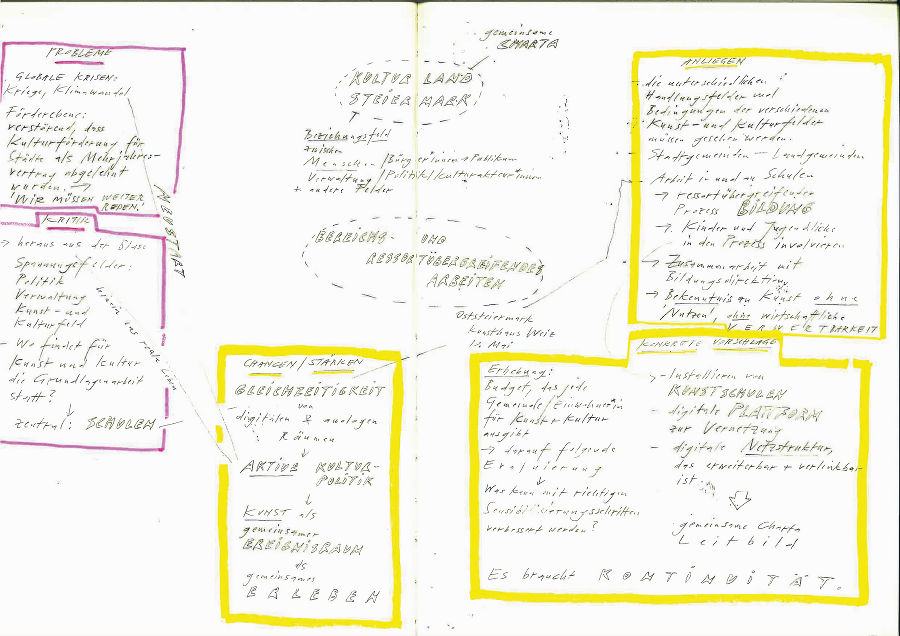 PROBLEME
GLOBALE KRISEN:
Kriege, Klimawandel
Förderebene:
verstörend, dass
Kulturförderung für
Städte als Mehrjahres-
vertrag abgelehnt
wurden. →
"WIR MÜSSEN WEITER
REDEN."
NEUSTART
KRITIK
→ heraus aus der Blase
Spannungsfelder:
Politik
Verwaltung
Kunst- und
Kulturfeld
- Wo findet für
Kunst und Kultur
die Grundlagenarbeit
statt?
↓
zentral: SCHULEN
hinein ins reale Leben
gemeinsame
CHARTA
KULTUR LAND
STEIERMARK
Beziehungsfeld
zwischen
Menschen/Bürger*innen + Publikum
Verwaltung/Politik/Kulturakteur*innen
+ andere Felder
BEREICHS- UND
RESSORTÜBERGREIFENDES
ARBEITEN
Oststeiermark
Kunsthaus Weiz
10. Mai
CHANCEN/STÄRKEN
GLEICHZEITIGKEIT
von
digitalen & analogen
Räumen
↓
AKTIVE KULTUR-
POLITIK
↓
KUNST als
gemeinsamer
EREIGNISRAUM
als
gemeinsames
ERLEBEN
ANLIEGEN
- die unterschiedlichen
Handlungsfelder und
Bedingungen der verschiedenen
Kunst- und Kulturfelder
müssen gesehen werden.
- Stadtgemeinden - Landgemeinden
- Arbeit in und an Schulen
→ ressortübergreifender
Prozess BILDUNG
→ Kinder und Jugendliche
in den Prozess involvieren
→ Zusammenarbeit mit
Bildungsdirektion
→ Bekenntnis zu Kunst ohne
Nutzen, ohne wirtschaftliche
VERWERTBARKEIT
KONKRETE VORSCHLÄGE
Erhebung:
Budget, das jede
Gemeinde/Einwohner*in
für Kunst + Kultur
ausgibt
→ darauf folgende
Evaluierung
↓
Was kann mit richtigen
Sensibilisierungsschritten
verbessert werden?
- Installieren von
KUNSTSCHULEN
- digitale PLATTFORM
zur Vernetzung
- digitale Netzstruktur,
das erweiterbar + verlinkbar
ist
gemeinsame Charta
Leitbild
Es braucht KONTINUITÄT.